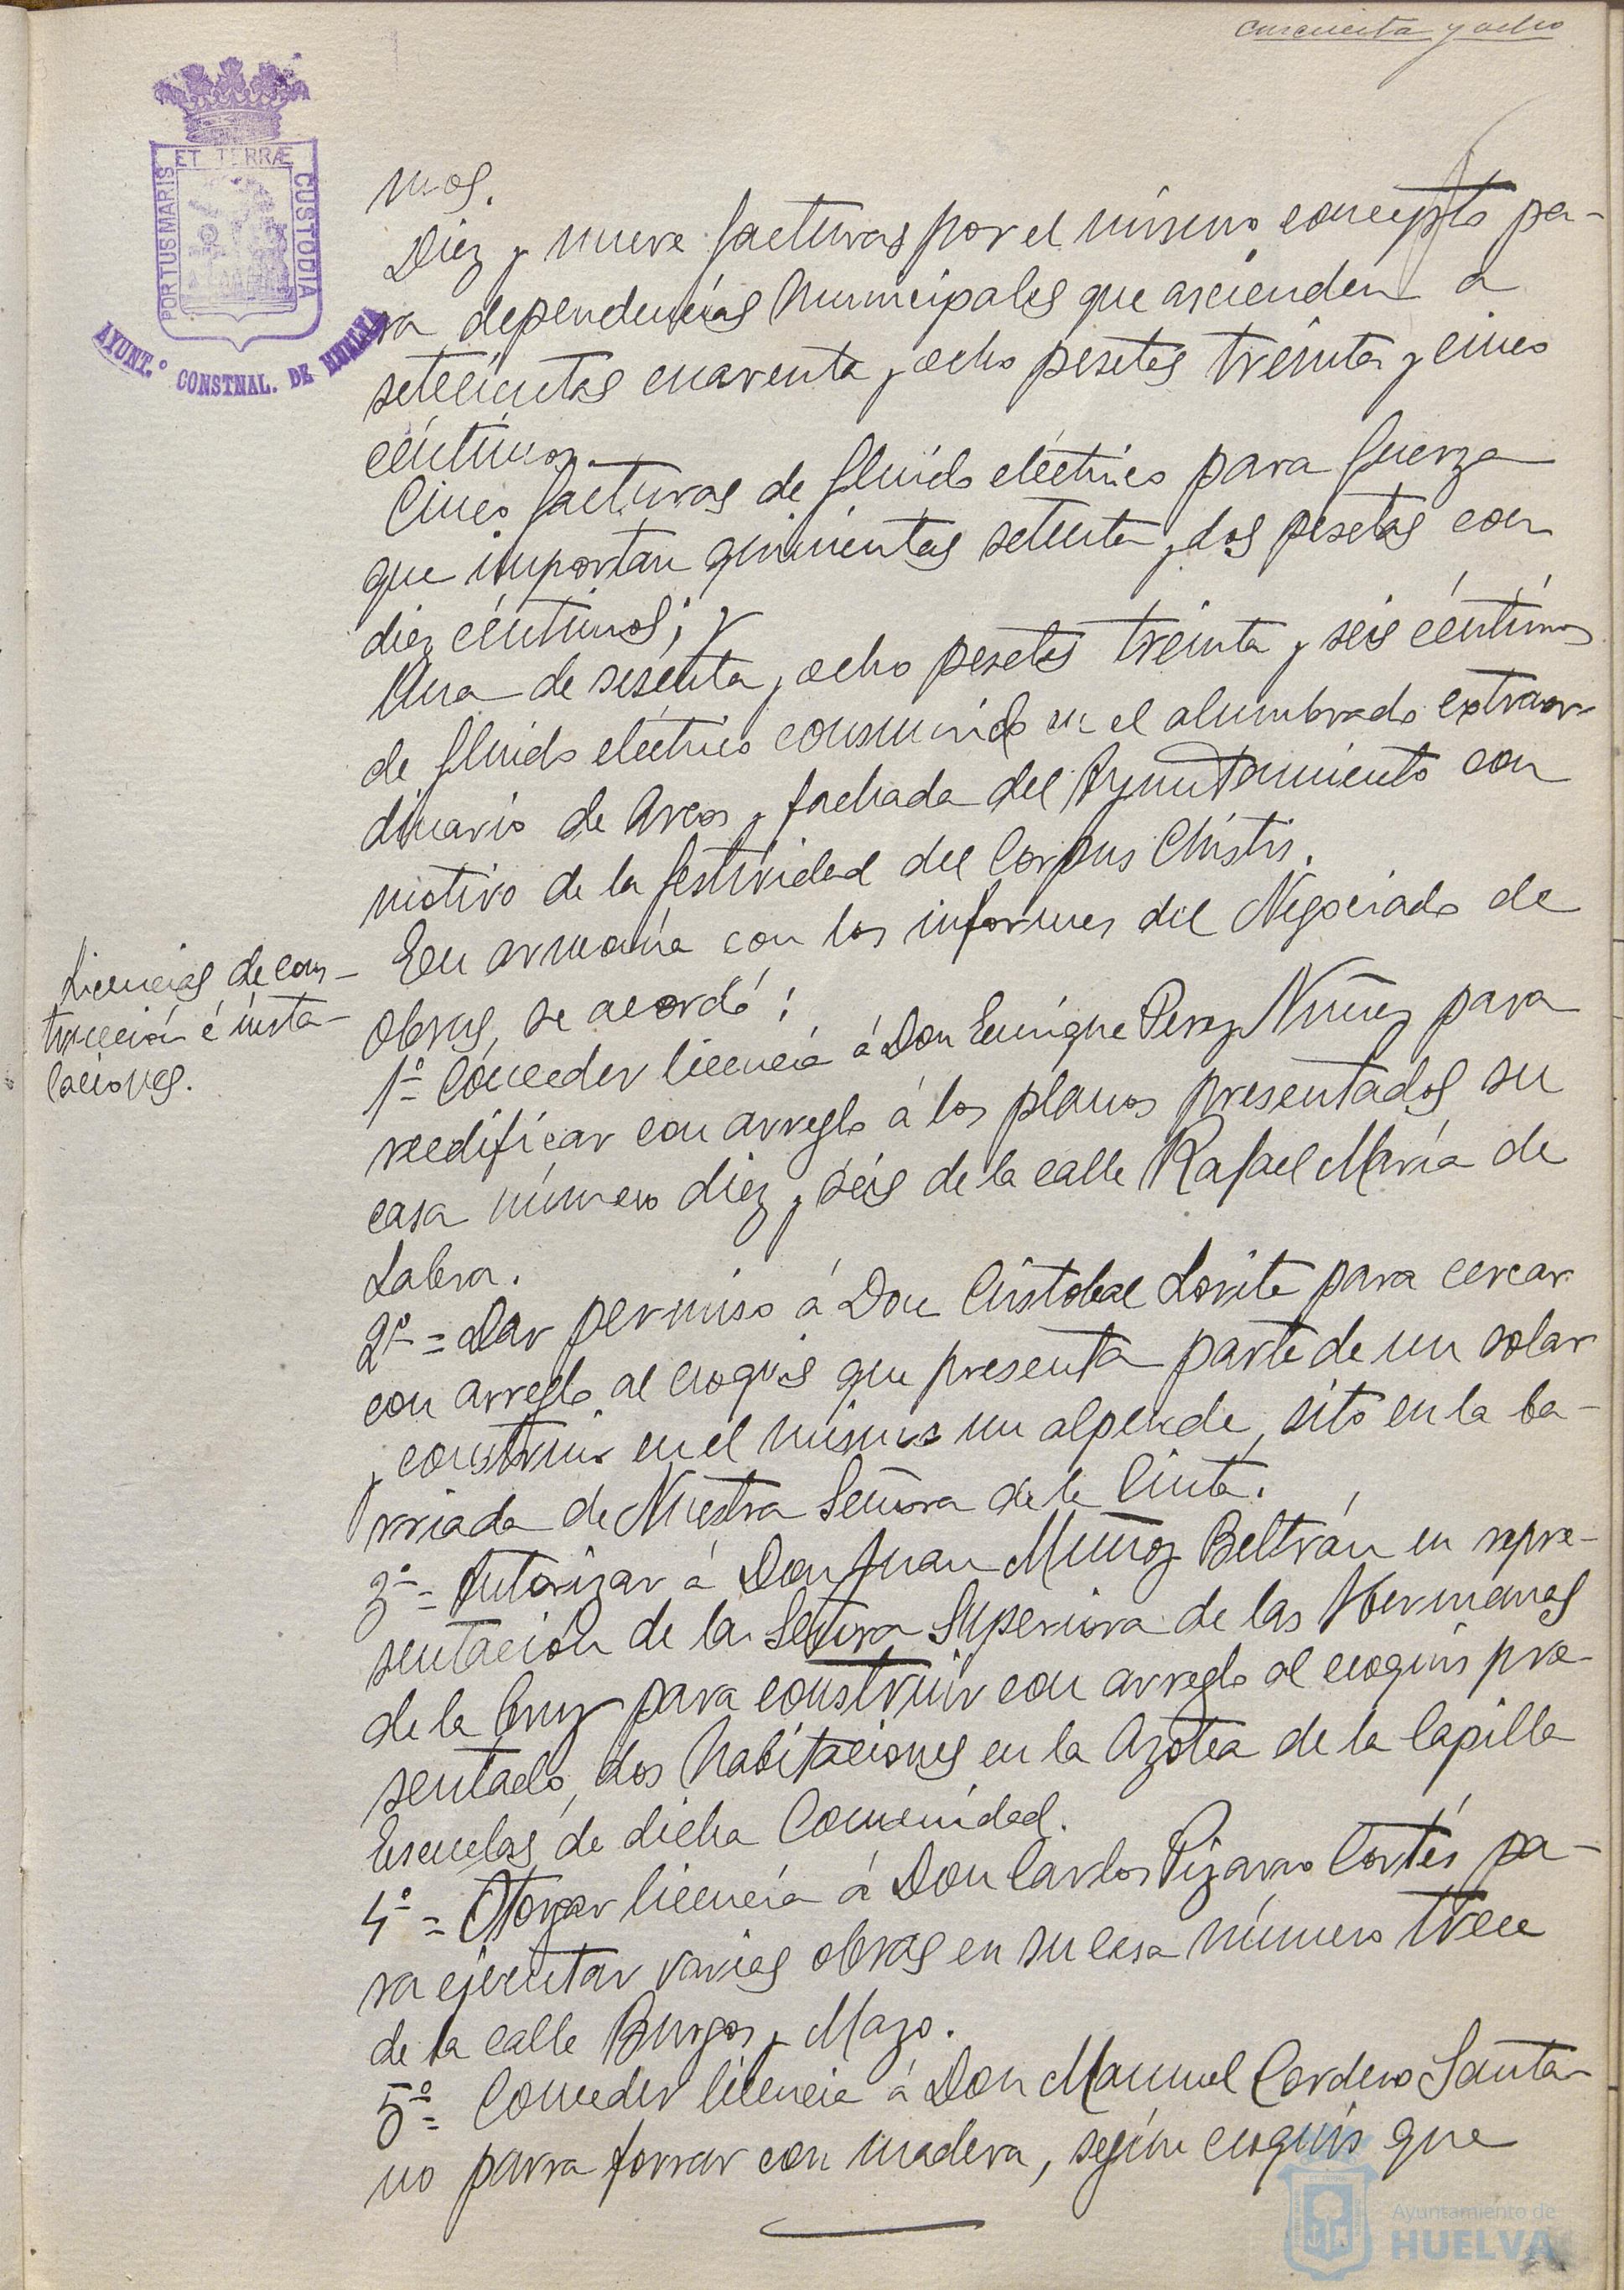 cincuenta y ocho
PORTUS MARIS ET TERRÆ CUSTODIA
AYUNT.º CONSTNAL. DE HUELVA
mos.
Diez y nueve facturas por el mismo concepto pa-
ra dependencias Municipales que ascienden a
setecientas cuarenta y ocho pesetas treinta y cinco
céntimos.
Cinco facturas de fluido eléctrico para fuerza
que importan quinientas setenta y dos pesetas con
diez céntimos; y
Una de sesenta y ocho pesetas treinta y seis céntimos
de fluido eléctrico consumido en el alumbrado extraor-
dinario de Arcos y fachada del Ayuntamiento con
motivo de la festividad del Corpus Christis.
Licencias de cons-
trucción é insta-
laciones.
En armonía con los informes del Negociado de
obras, se acordó:
1º Conceder licencia á Don Enrique Perez Nuñez para
reedificar con arreglo á los planos presentados su
casa número diez y seis de la calle Rafael María de
Labra.
2º = Dar permiso á Don Cristobal Lorite para cercar
con arreglo al croquis que presenta parte de un solar
y construir en el mismo un alpende, sito en la ba-
rriada de Nuestra Señora de la Cinta.
3º = Autorizar á Don Juan Muñoz Beltrán en repre-
sentación de la Señora Superiora de las Hermanas
de la Cruz para construir con arreglo al croquis pre-
sentado, dos habitaciones en la Azotea de la Capilla
Escuelas de dicha Comunidad.
4º = Otorgar licencia á Don Carlos Pizarro Cortés pa-
ra ejecutar varias obras en su casa número trece
de la calle Burgos y Mazo.
5º = Conceder licencia á Don Manuel Cordero Santa-
no parra forrar con madera, según croquis que
Ayuntamiento de
HUELVA